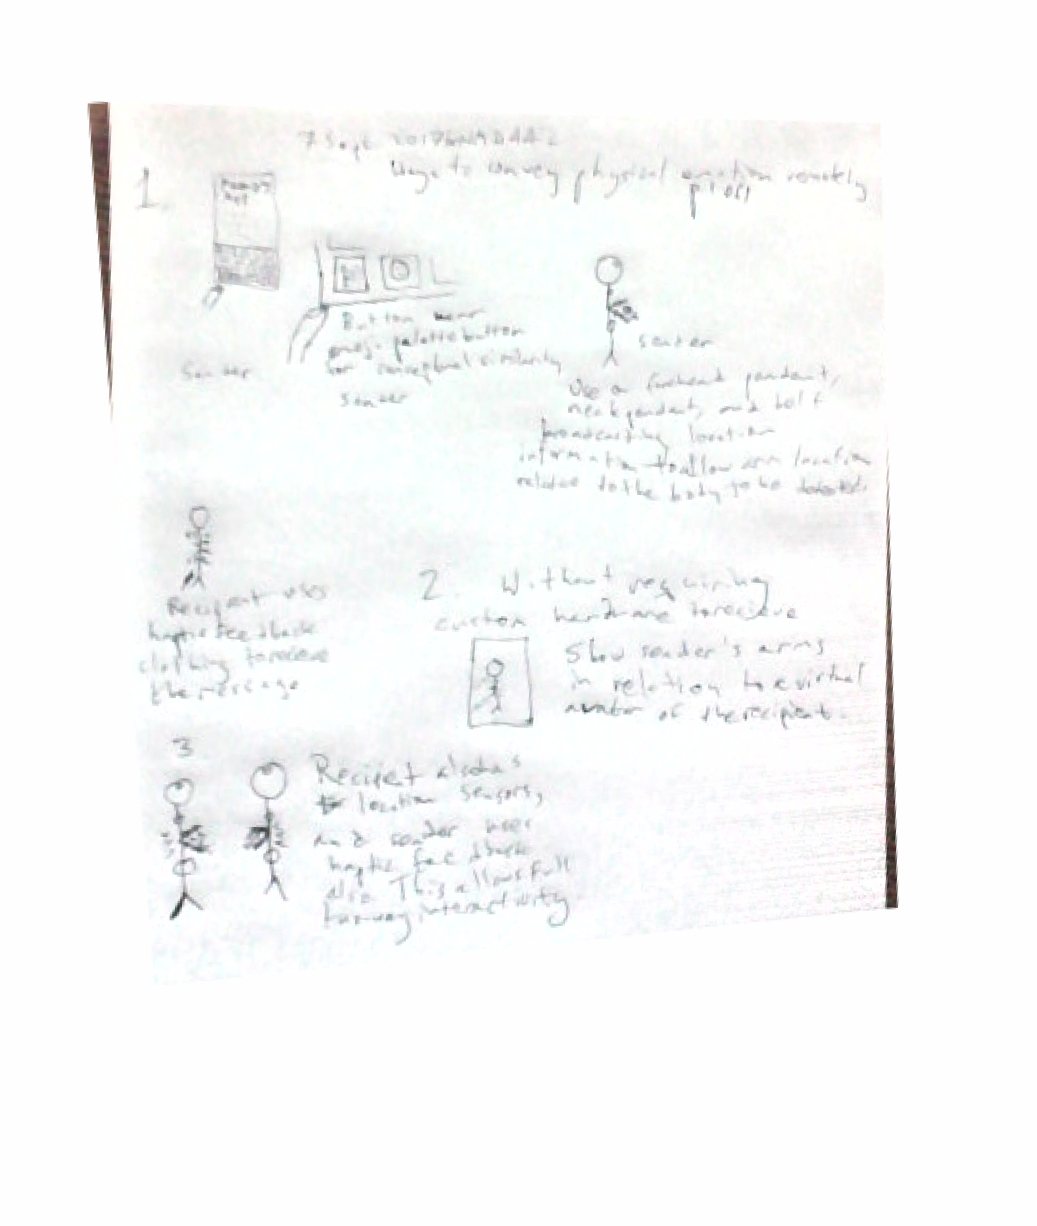 7 Sept 2017
Ways to convey physical emotion remotely
p 1 of 1
1.
Button near
emoji palette button
for conceptual similarity
sender
sender
sender
Use a forehead pendant,
neck pendant, and belt
broadcasting location
information to allow arm location
relative to the body to be detected.
Recipient uses
haptic feedback
clothing to recieve
the message
2. Without requiring
custom hardware to recieve
Show sender's arms
in relation to a virtual
avatar of the recipient.
3
Recipet also has
location sensors,
and sender uses
haptic feedback
also. This allows full
two-way interactivity.